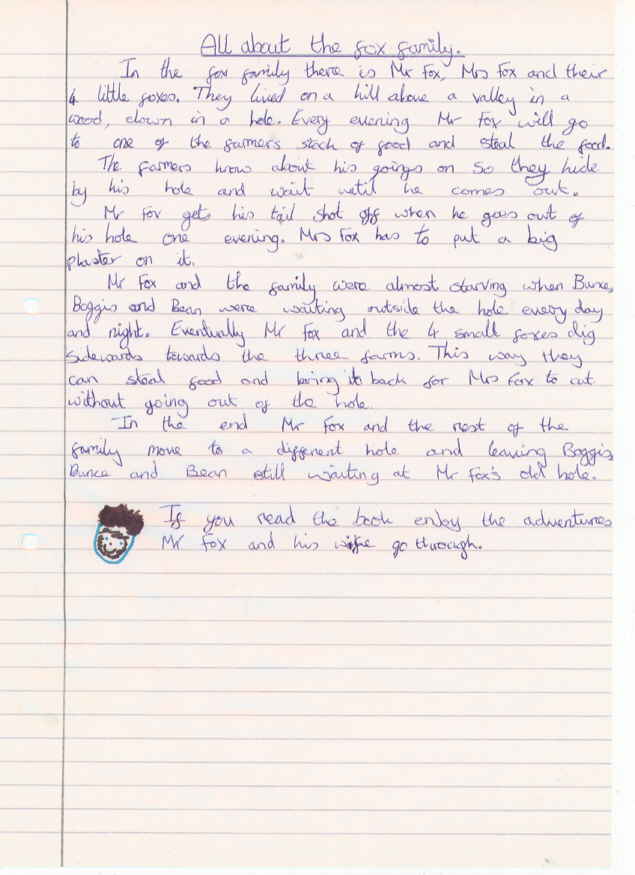 All about the fox family.
In the fox family there is Mr Fox, Mrs Fox and their
4 little foxes. They lived on a hill above a valley in a
wood, down in a hole. Every evening Mr Fox will go
to one of the farmers stock of food and steal the food.
The farmers know about his goings on so they hide
by his hole and wait until he comes out.
Mr Fox gets his tail shot off when he goes out of
his hole one evening. Mrs Fox has to put a big
plaster on it.
Mr Fox and the family were almost starving when Bunce,
Boggis and Bean were waiting outside the hole every day
and night. Eventually Mr Fox and the 4 small foxes dig
sidewards towards the three farms. This way they
can steal food and bring it back for Mrs Fox to eat
without going out of the hole.
In the end Mr Fox and the rest of the
family move to a different hole and leaving Boggis
Bunce and Bean still waiting at Mr Fox's old hole.
If you read the book enjoy the adventures
Mr Fox and his wife go through.